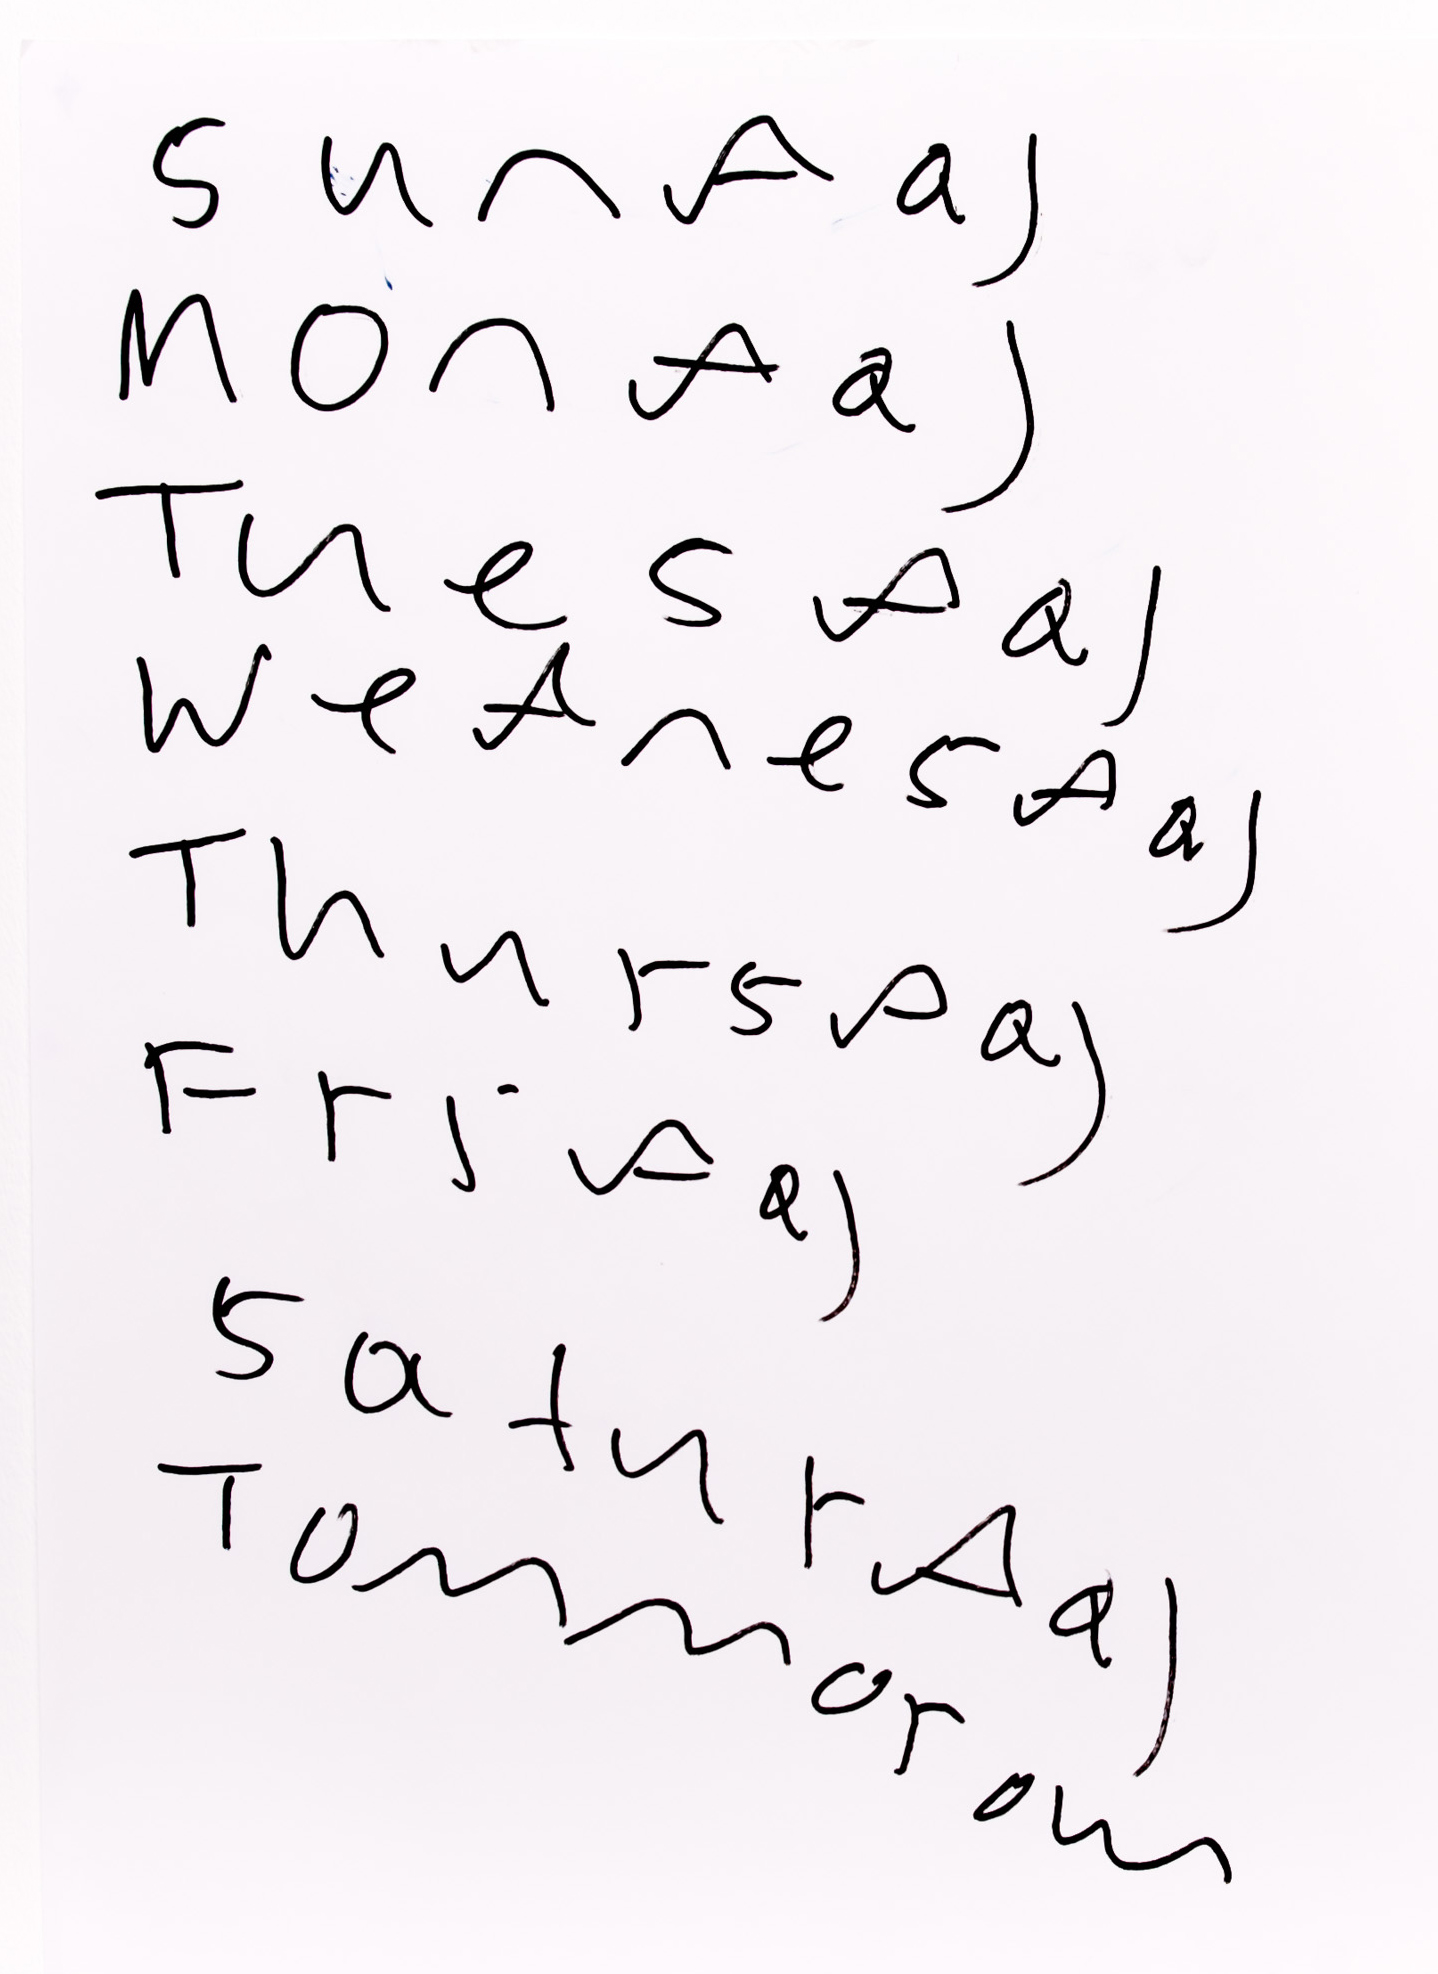 Sunday
Monday
Tuesday
Wednesday
Thursday
Friday
Saturday
Tommorow